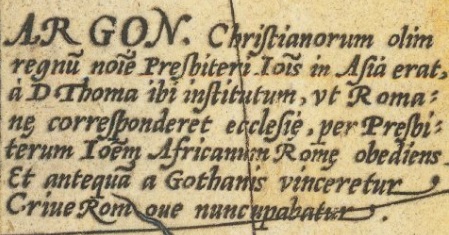 ARGON. Christianorum olim
regnũ noĩe Presbiteri Ioĩs in Asia erat,
à D Thoma ibi institutum, vt Roma⸗
nę corresponderet ecclesię, per Presbi⸗
terum Ioẽm Africanum Romę obediens
Et antequã a Gothanis vinceretur
Criue Rom oue nuncupabatur.